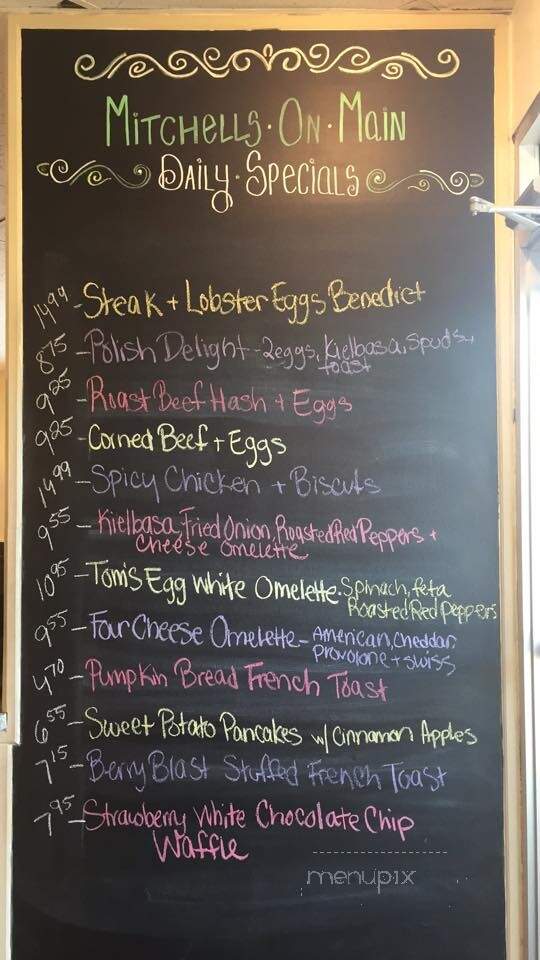 Mitchells · On · Main
Daily · Specials
14.99 - Steak + Lobster Eggs Benedict
8.75 - Polish Delight - 2eggs, Kielbasa, spuds +
toast
9.25 - Roast Beef Hash + Eggs
9.25 - Corned Beef + Eggs
14.99 - Spicy Chicken + Biscuts
9.55 - Kielbasa, Fried Onion, Roasted Red Peppers +
Cheese omelette
10.95 - Tom's Egg White Omelette - Spinach, feta
Roasted Red peppers
9.55 - Four Cheese Omelette - American, Cheddar,
Provolone + swiss
4.70 - Pumpkin Bread French Toast
6.55 - Sweet Potato Pancakes w/ cinnamon Apples
7.15 - Berry Blast Stuffed French Toast
7.95 - Strawberry White Chocolate Chip
Waffle
menupix